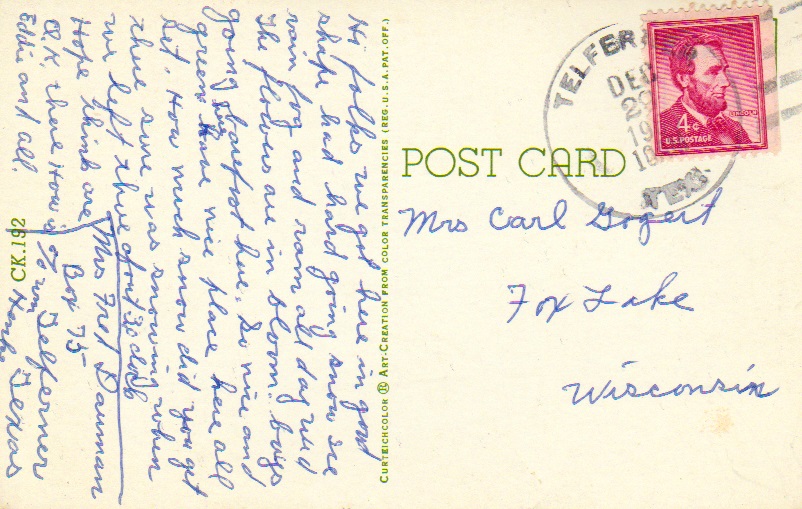 Hi folks we got here in good
shape had hard going snow ice
rain fog and ram all day wed
The flowers are in bloom. boys
going barefoot here. So nice and
green. Have nice place here all
set. How much snow did you get
there sure was snowing when
we left there about 3 o clock
Hope things are
O.K there How is
Eddie and all.
Mrs Fred Dauman
Box 75
Telferner
Texas
CK.192
CURTEICHCOLOR ® ART-CREATION FROM COLOR TRANSPARENCIES (REG. U.S.A. PAT. OFF.)
POST CARD
TELFER
DEC
19
TEX.
LINCOLN
4¢
U.S. POSTAGE
Mrs Carl Gogert
Fox Lake
Wisconsin